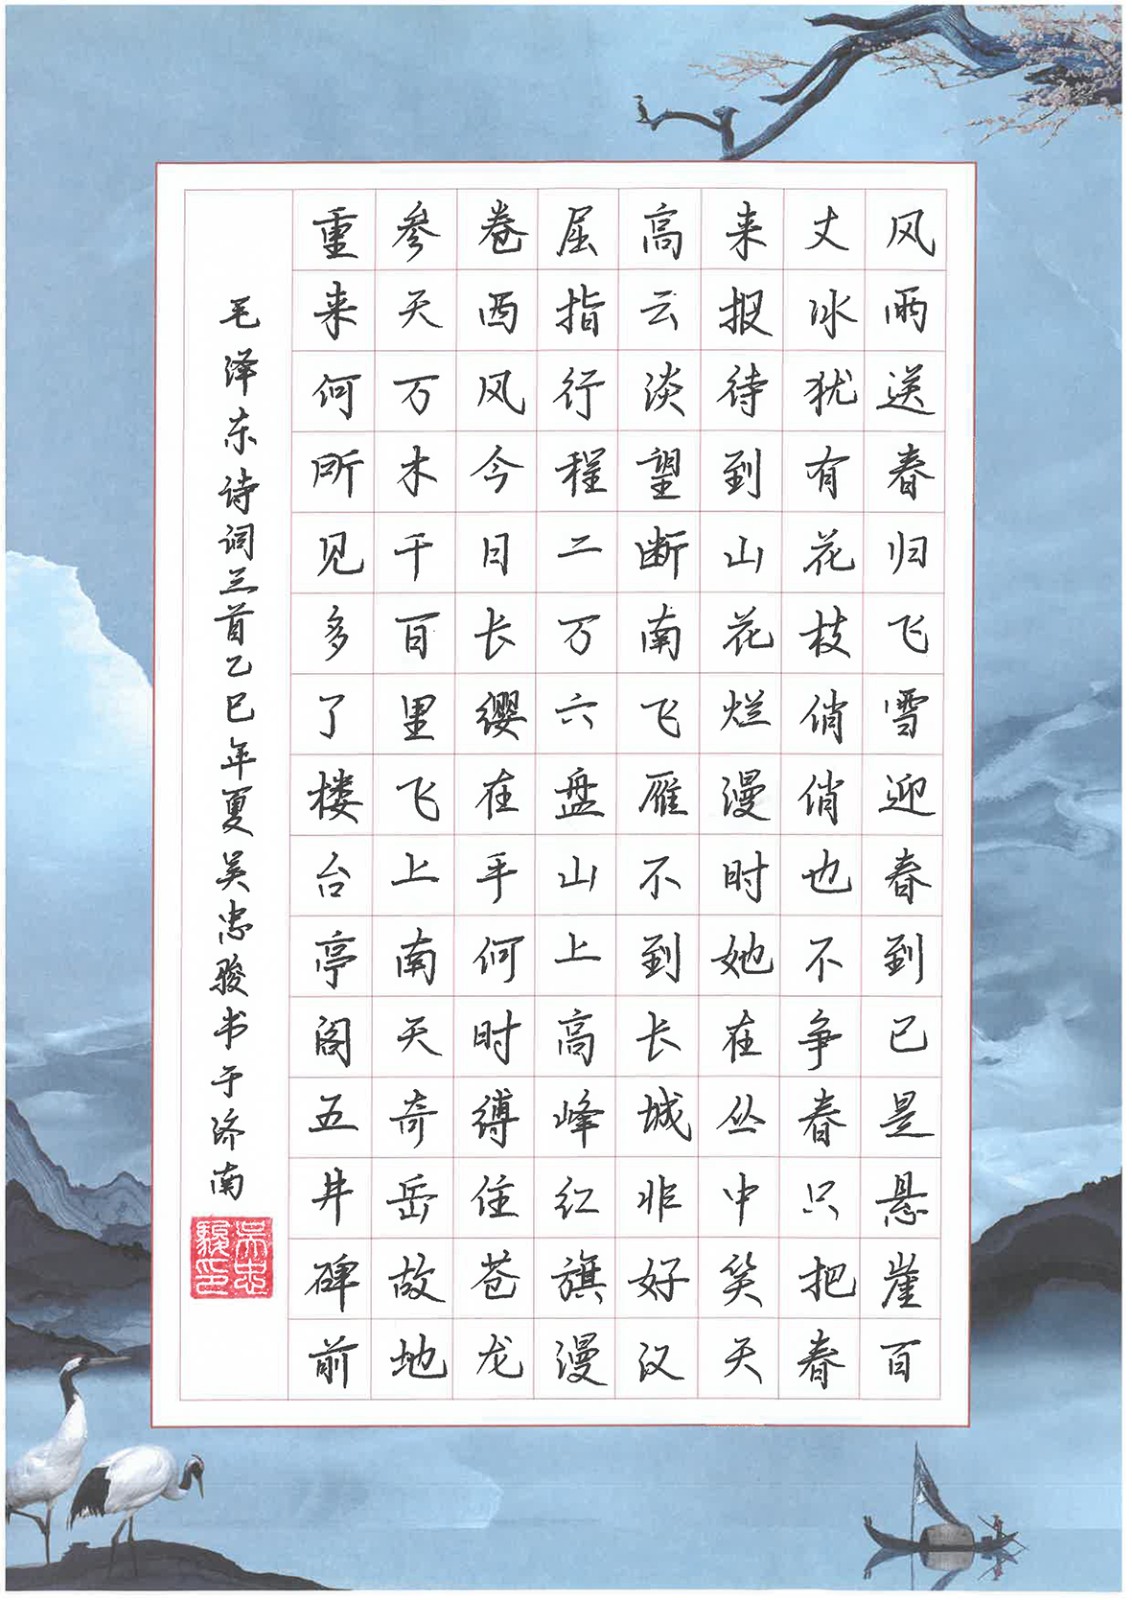 风雨送春归飞雪迎春到已是悬崖百
丈冰犹有花枝俏俏也不争春只把春
来报待到山花烂漫时她在丛中笑天
高云淡望断南飞雁不到长城非好汉
屈指行程二万六盘山上高峰红旗漫
卷西风今日长缨在手何时缚住苍龙
参天万木千百里飞上南天奇岳故地
重来何所见多了楼台亭阁五井碑前
毛泽东诗词三首乙巳年夏吴忠骏书于济南
吴忠骏印